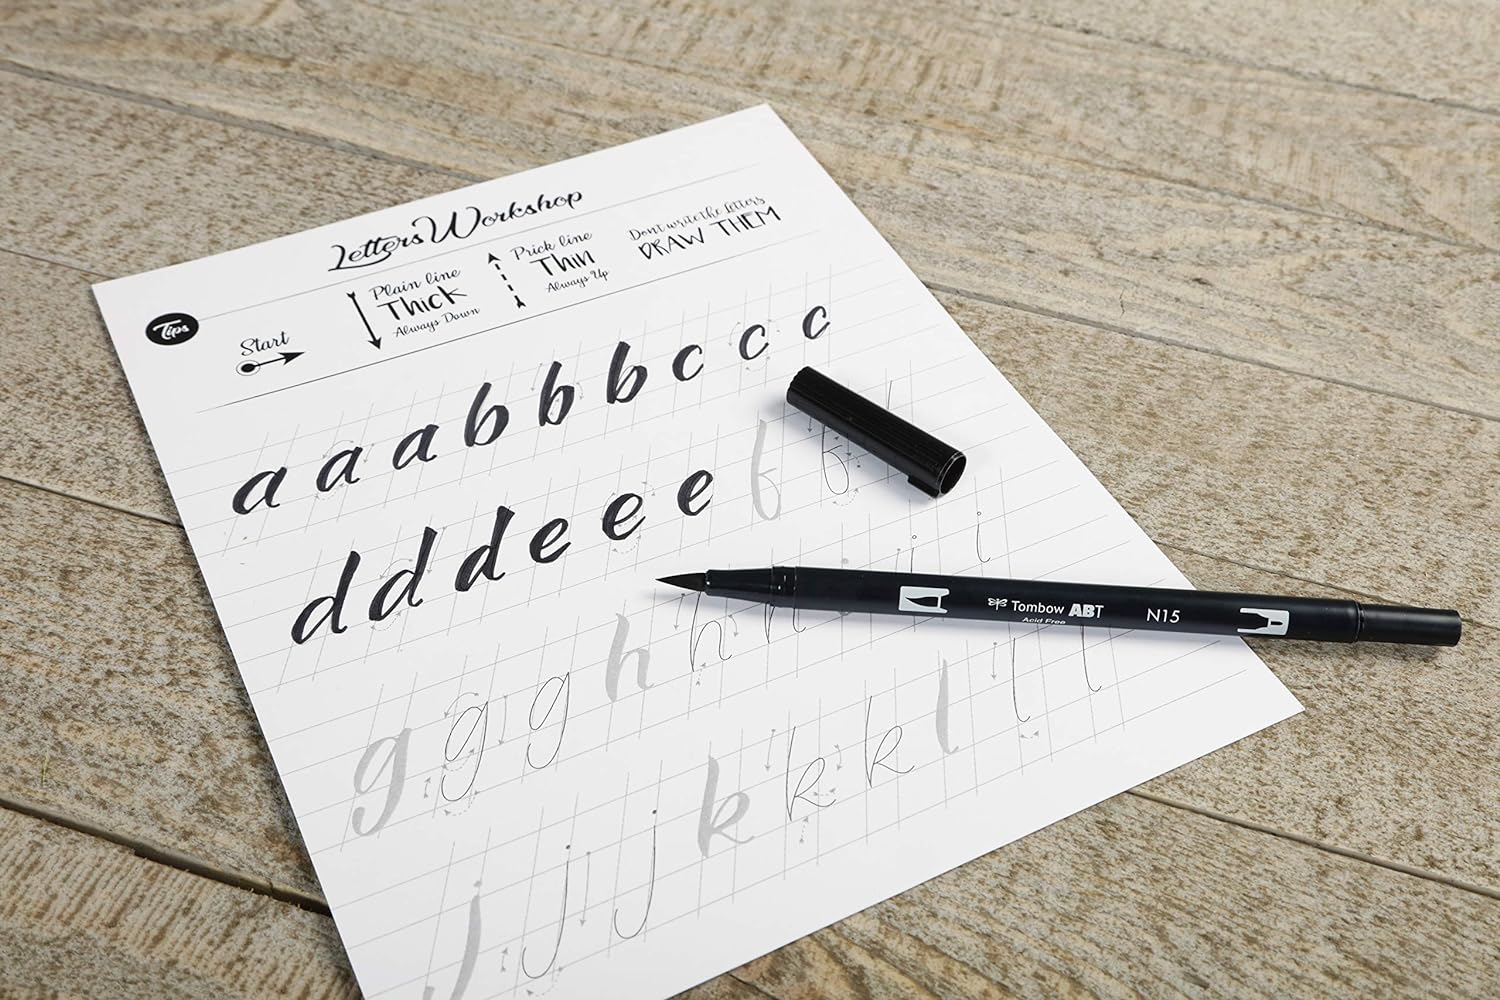 Letters Workshop
Tips
Start
Plain line
Thick
Always Down
Prick line
Thin
Always Up
Dont write the letters
DRAW THEM
a a a b b b c c c
d d d e e e f f
g g g h h h i i i
j j j k k k l l l
Tombow ABT N15
Acid Free